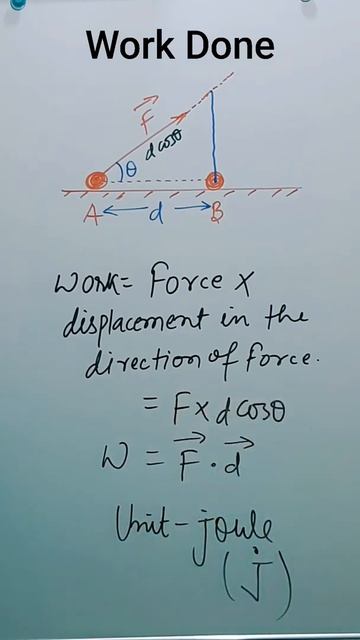 Work Done
F
d cosθ
θ
A d B
Work = Force X
displacement in the
direction of force.
= F x d cosθ
W = F . d
Unit - joule
(J)